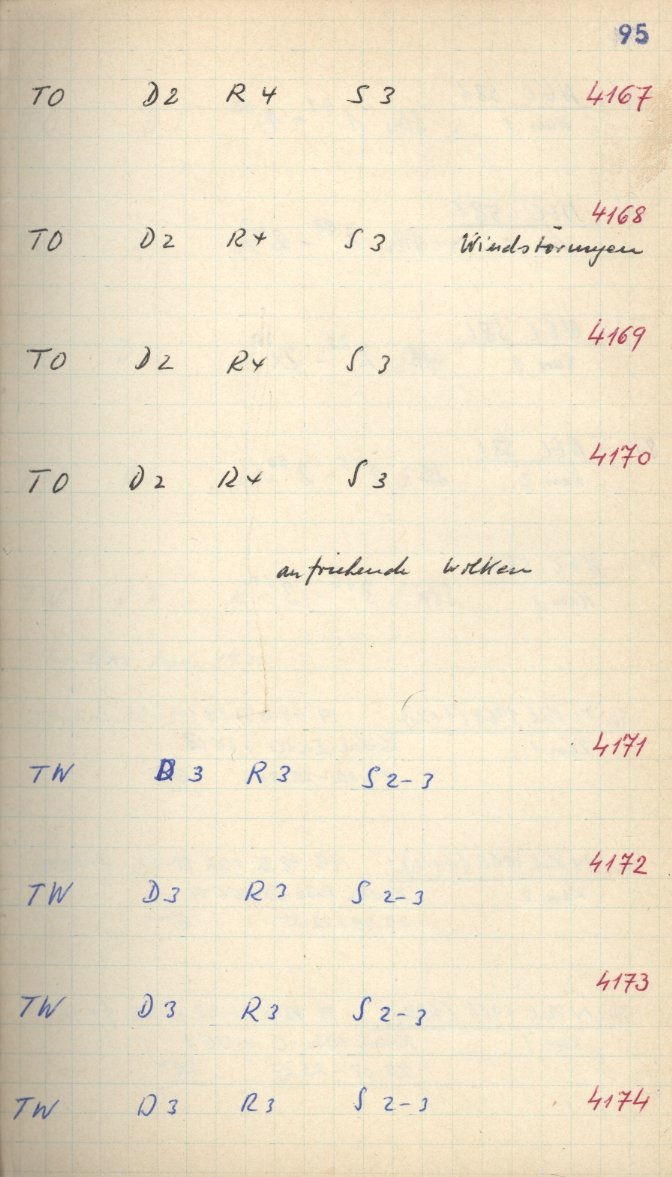 95
TO D2 R4 S3 4167
4168
TO D2 R4 S3 Windstörungen
4169
TO D2 R4 S3
4170
TO D2 R4 S3
aufziehende Wolken
4171
TW D3 R3 S2-3
4172
TW D3 R3 S2-3
4173
TW D3 R3 S2-3
TW D3 R3 S2-3 4174